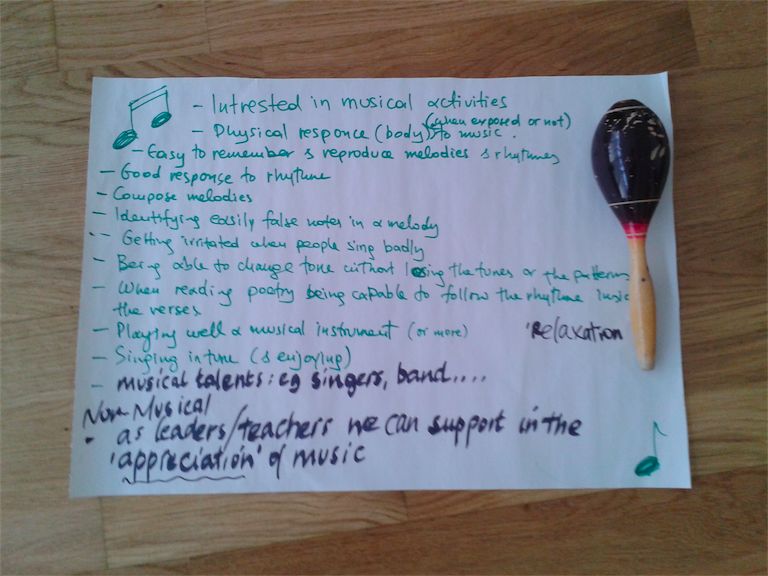 - Intrested in musical activities
(when exposed or not)
- Physical responce (body) to music.
- Easy to remember & reproduce melodies & rhythmes
- Good response to rhythme
- Compose melodies
- Identifying easily false notes in a melody
- Getting irritated when people sing badly
- Being able to change tone without losing the tunes or the patterns
- When reading poetry being capable to follow the rhythme
the verses
- Playing well a musical instrument (or more)
'Relaxation
- Singing in tune (& enjoying)
- musical talents: eg singers, band....
Non Musical
• as leaders/teachers we can support in the
'appreciation' of music